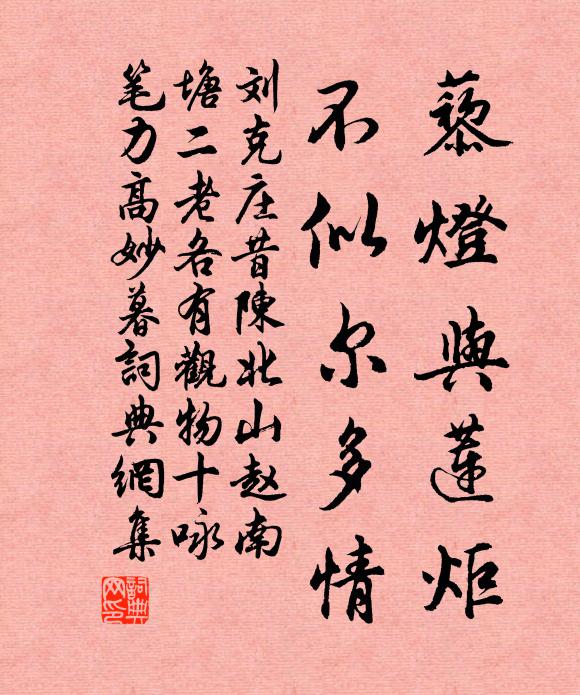 藜燈與蓮炬
不似尔多情
刘克庄昔陳北山赵南
塘二老各有觀物十咏
笔力高妙暮詞典網集
詞典网印